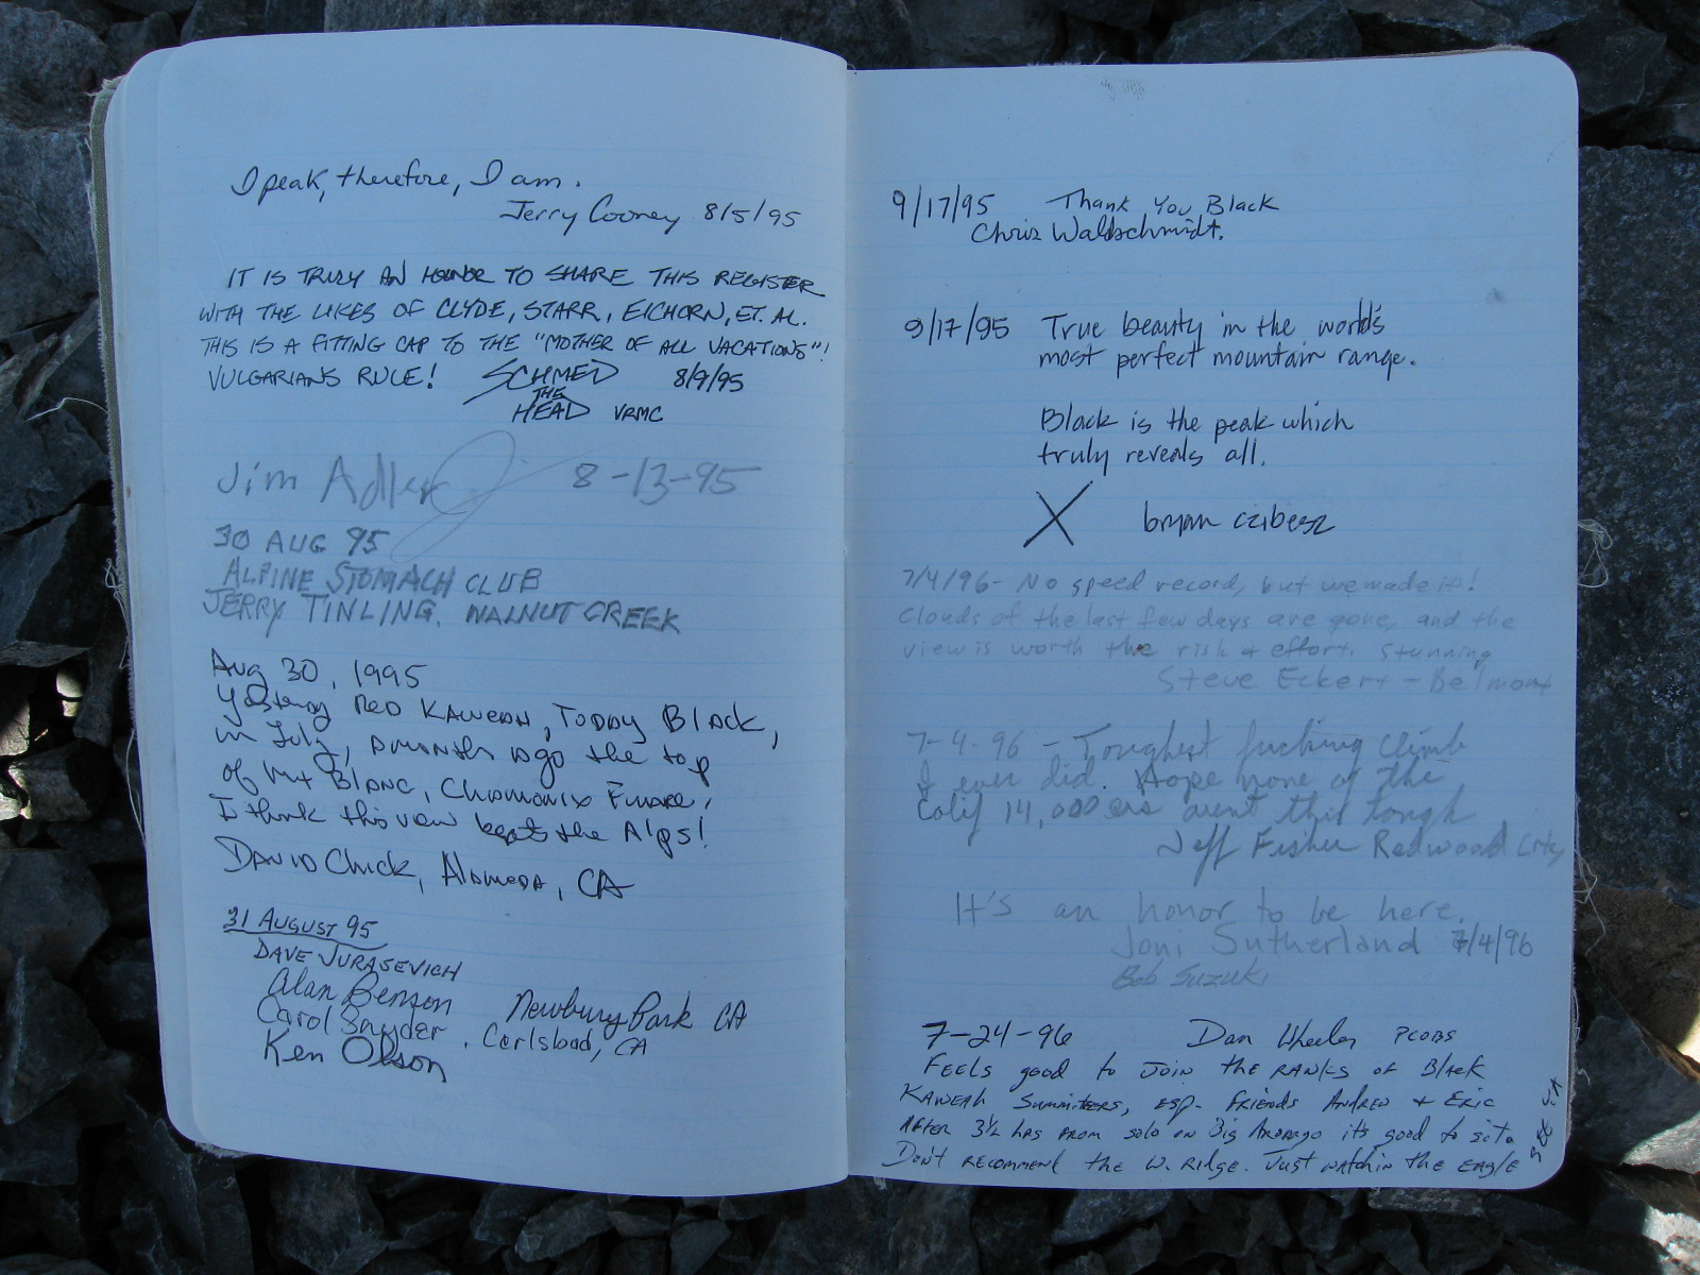 I peak, therefore, I am.
Jerry Cooney 8/5/95
IT IS TRULY AN HONOR TO SHARE THIS REGISTER
WITH THE LIKES OF CLYDE, STARR, EICHORN, ET. AL.
THIS IS A FITTING CAP TO THE "MOTHER OF ALL VACATIONS"!
VULGARIANS RULE! SCHMED 8/9/95
THE
HEAD VRMC
Jim Adler 8-13-95
30 AUG 95
ALPINE STOMACH CLUB
JERRY TINLING. WALNUT CREEK
Aug 30, 1995
Yesterday Red KAWEAH, TODAY BlAck,
in July, A month Ago the top
of Mt BlANC, ChAmonix FrANCE,
I think this view beats the Alps!
DAVID Chick, AlAmedA, CA
31 AUGUST 95
DAVE JURASEVICH
Alan Benson Newbury Park CA
Carol Snyder . Carlsbad, CA
Ken Olson
9/17/95 Thank You Black
Chris Waldschmidt.
9/17/95 True beauty in the world's
most perfect mountain range.
Black is the peak which
truly reveals all.
X bryan
7/4/96- No speed record, but we made it!
Clouds of the last few days are gone, and the
view is worth the risk & effort. Stunning
Steve Eckert - Belmont
7-4-96 - Toughest fucking climb
I ever did. Hope none of the
Calif 14,000ers arent this tough
Jeff Fisher Redwood City
It's an honor to be here.
Joni Sutherland 7/4/96
Bob Suzuki
7-24-96 Dan Wheeler PCOBS
FEELS good to JOIN the RANKS OF BlAck
KAWEAH SummitERS, ESP. FRIENDS ANDREW + ERIC
AFTER 3½ hRS FROM solo ON Big it's good to sit.
Don't RECOMMENT the W. RIdge. Just WATCHIN the EAGLE
SEE YA